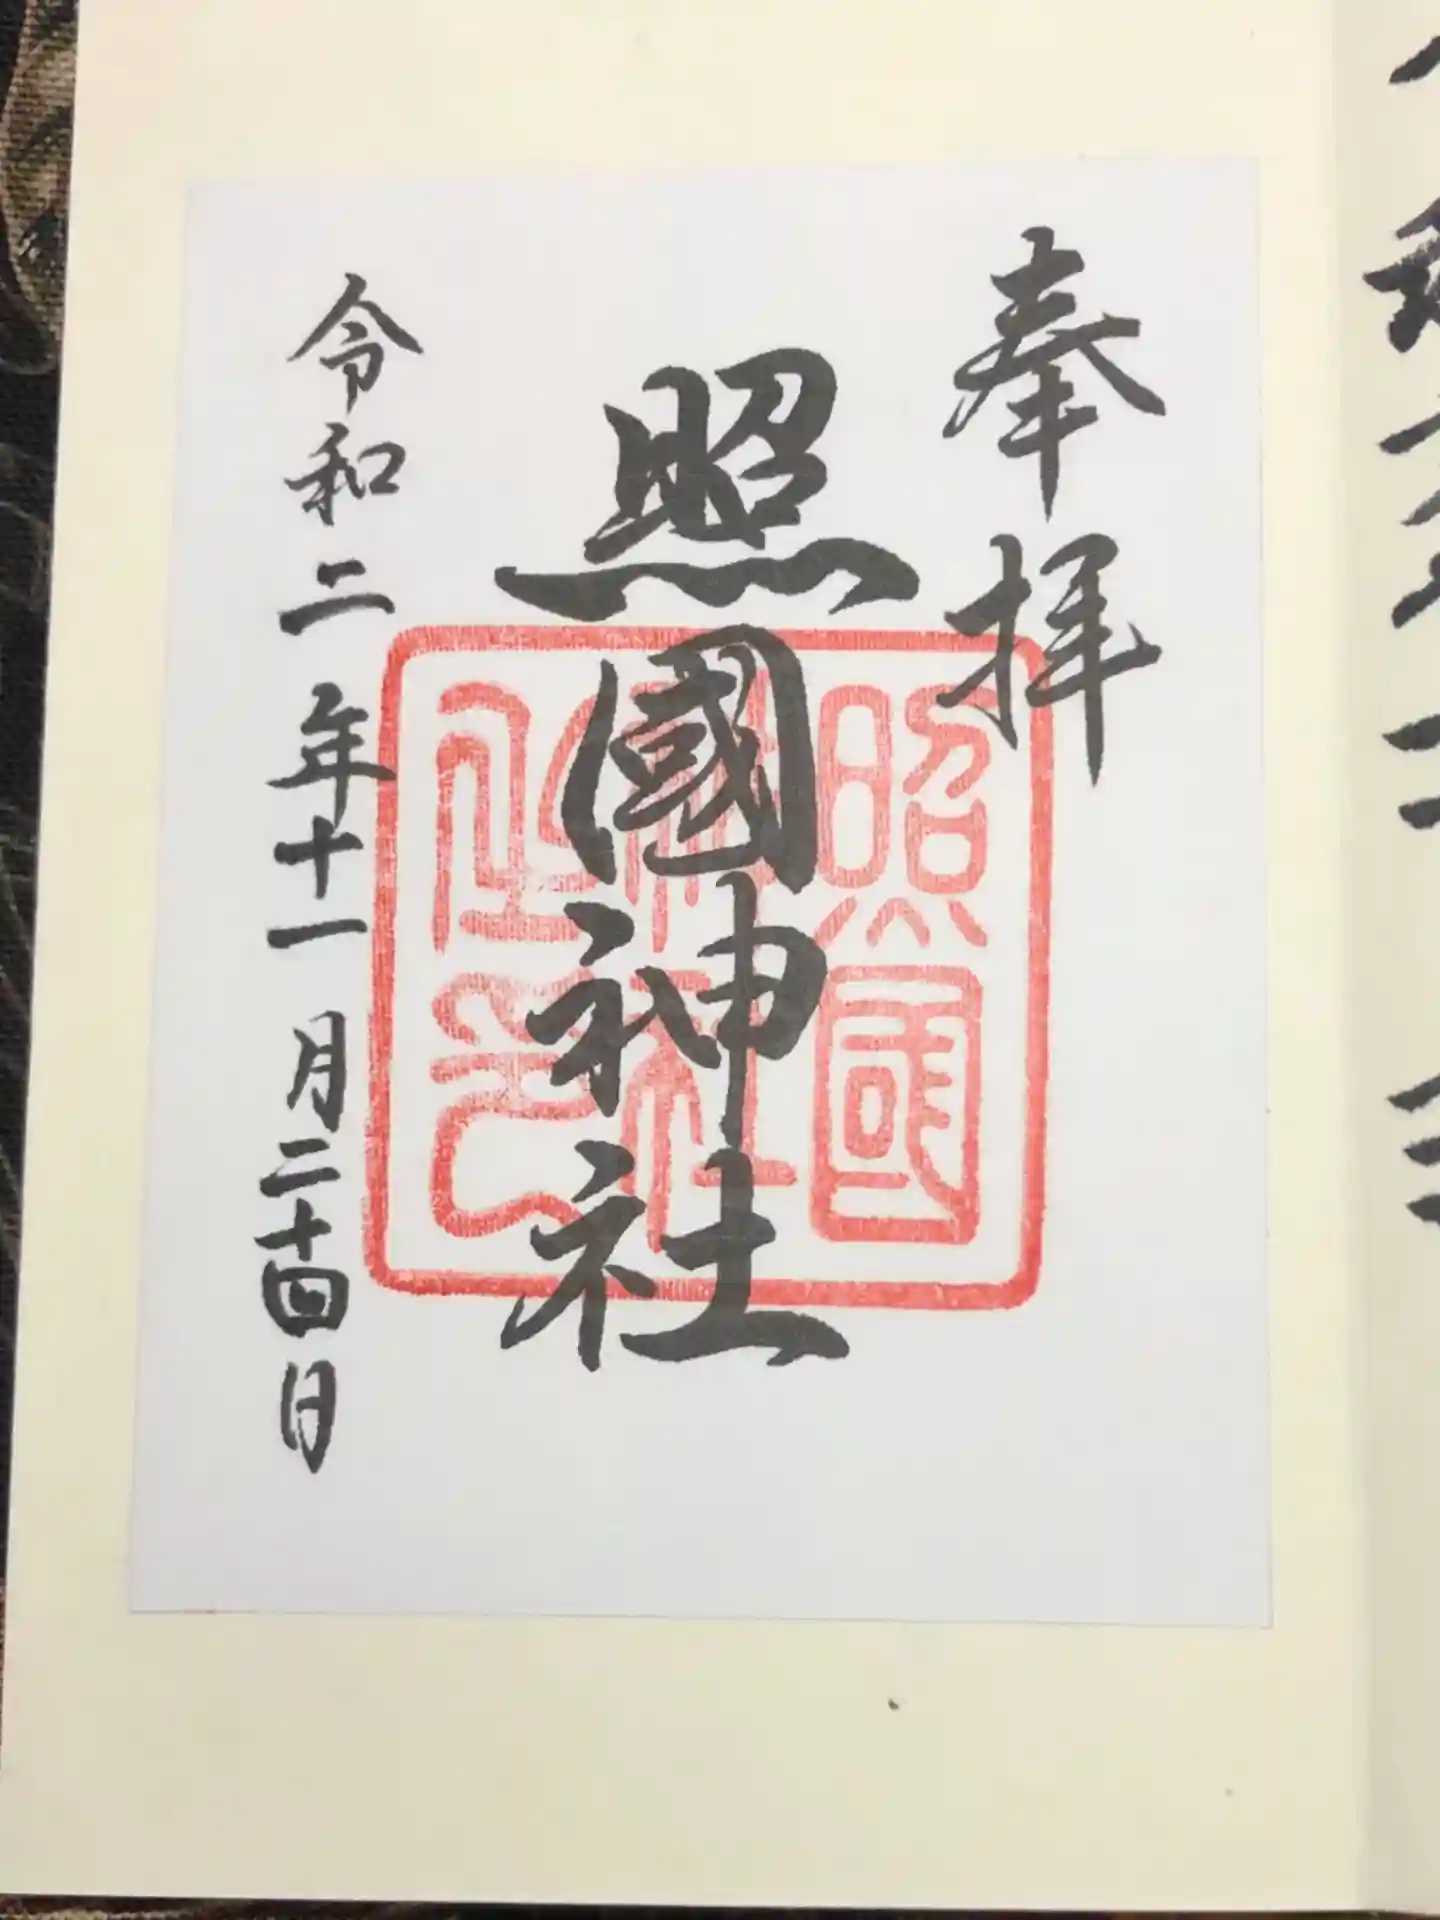 奉拝
照國神社
照國
神社
之印
令和二年十一月二十四日